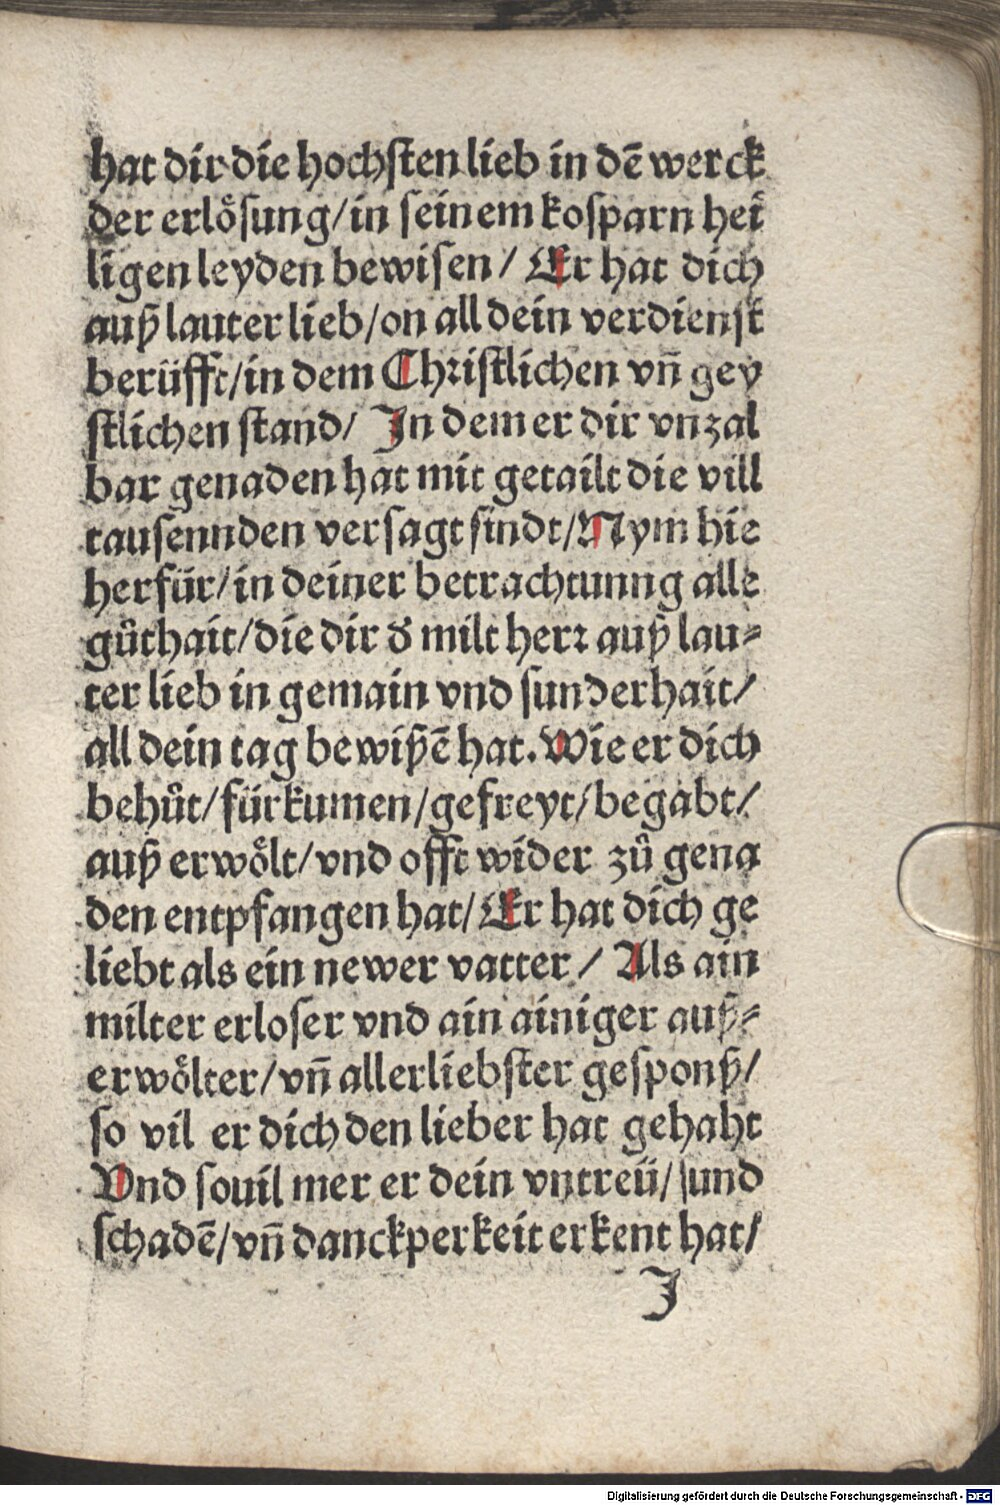 hat dir die hochsten lieb in dē werck
der erlösung/in seinem kosparn hei
ligen leyden bewisen/ Er hat dich
auß lauter lieb/on all dein verdienst
berüfft/in dem Christlichen vn̄ gey
stlichen stand/ In dem er dir vnzal
bar genaden hat mit getailt die vill
tausennden versagt sindt/Nym hie
herfür/in deiner betrachtunng alle
gůthait/die dir d' milt herr auß lau⸗
ter lieb in gemain vnd sunderhait/
all dein tag bewißē hat. Wie er dich
behůt/fürkumen/gefreyt/begabt/
auß erwölt/vnd offt wider zů gena
den entpfangen hat/Er hat dich ge
liebt als ein newer vatter/ Als ain
milter erloser vnd ain ainiger auß⸗
erwölter/vn̄ allerliebster gesponß/
so vil er dich den lieber hat gehaht
Vnd souil mer er dein vntreü/sund
schadē/vn̄ danckperkeit erkent hat/
J
Digitalisierung gefördert durch die Deutsche Forschungsgemeinschaft - DFG